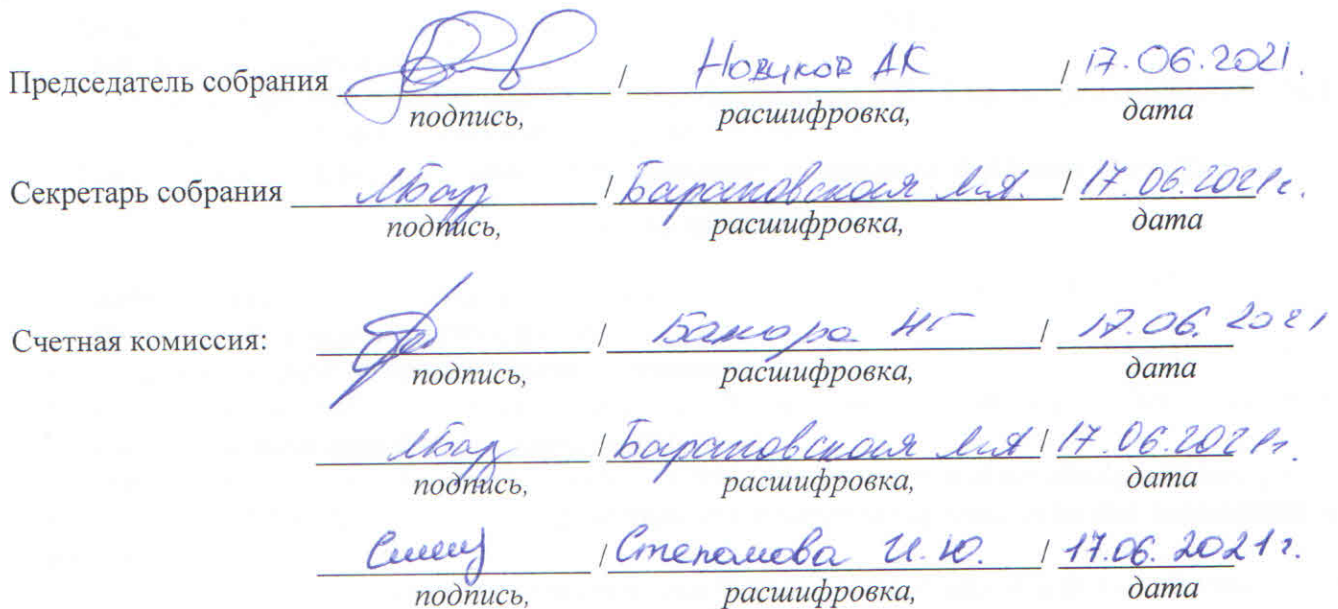 Председатель собрания / Новиков АК / 17.06.2021.
подпись, расшифровка, дата
Секретарь собрания / Барановская Л.А. / 17.06.2021г.
подпись, расшифровка, дата
Счетная комиссия: / НГ / 17.06.2021
подпись, расшифровка, дата
/ Барановская Л.А / 17.06.2021г.
подпись, расшифровка, дата
/ Степанова И.Ю. / 17.06.2021г.
подпись, расшифровка, дата